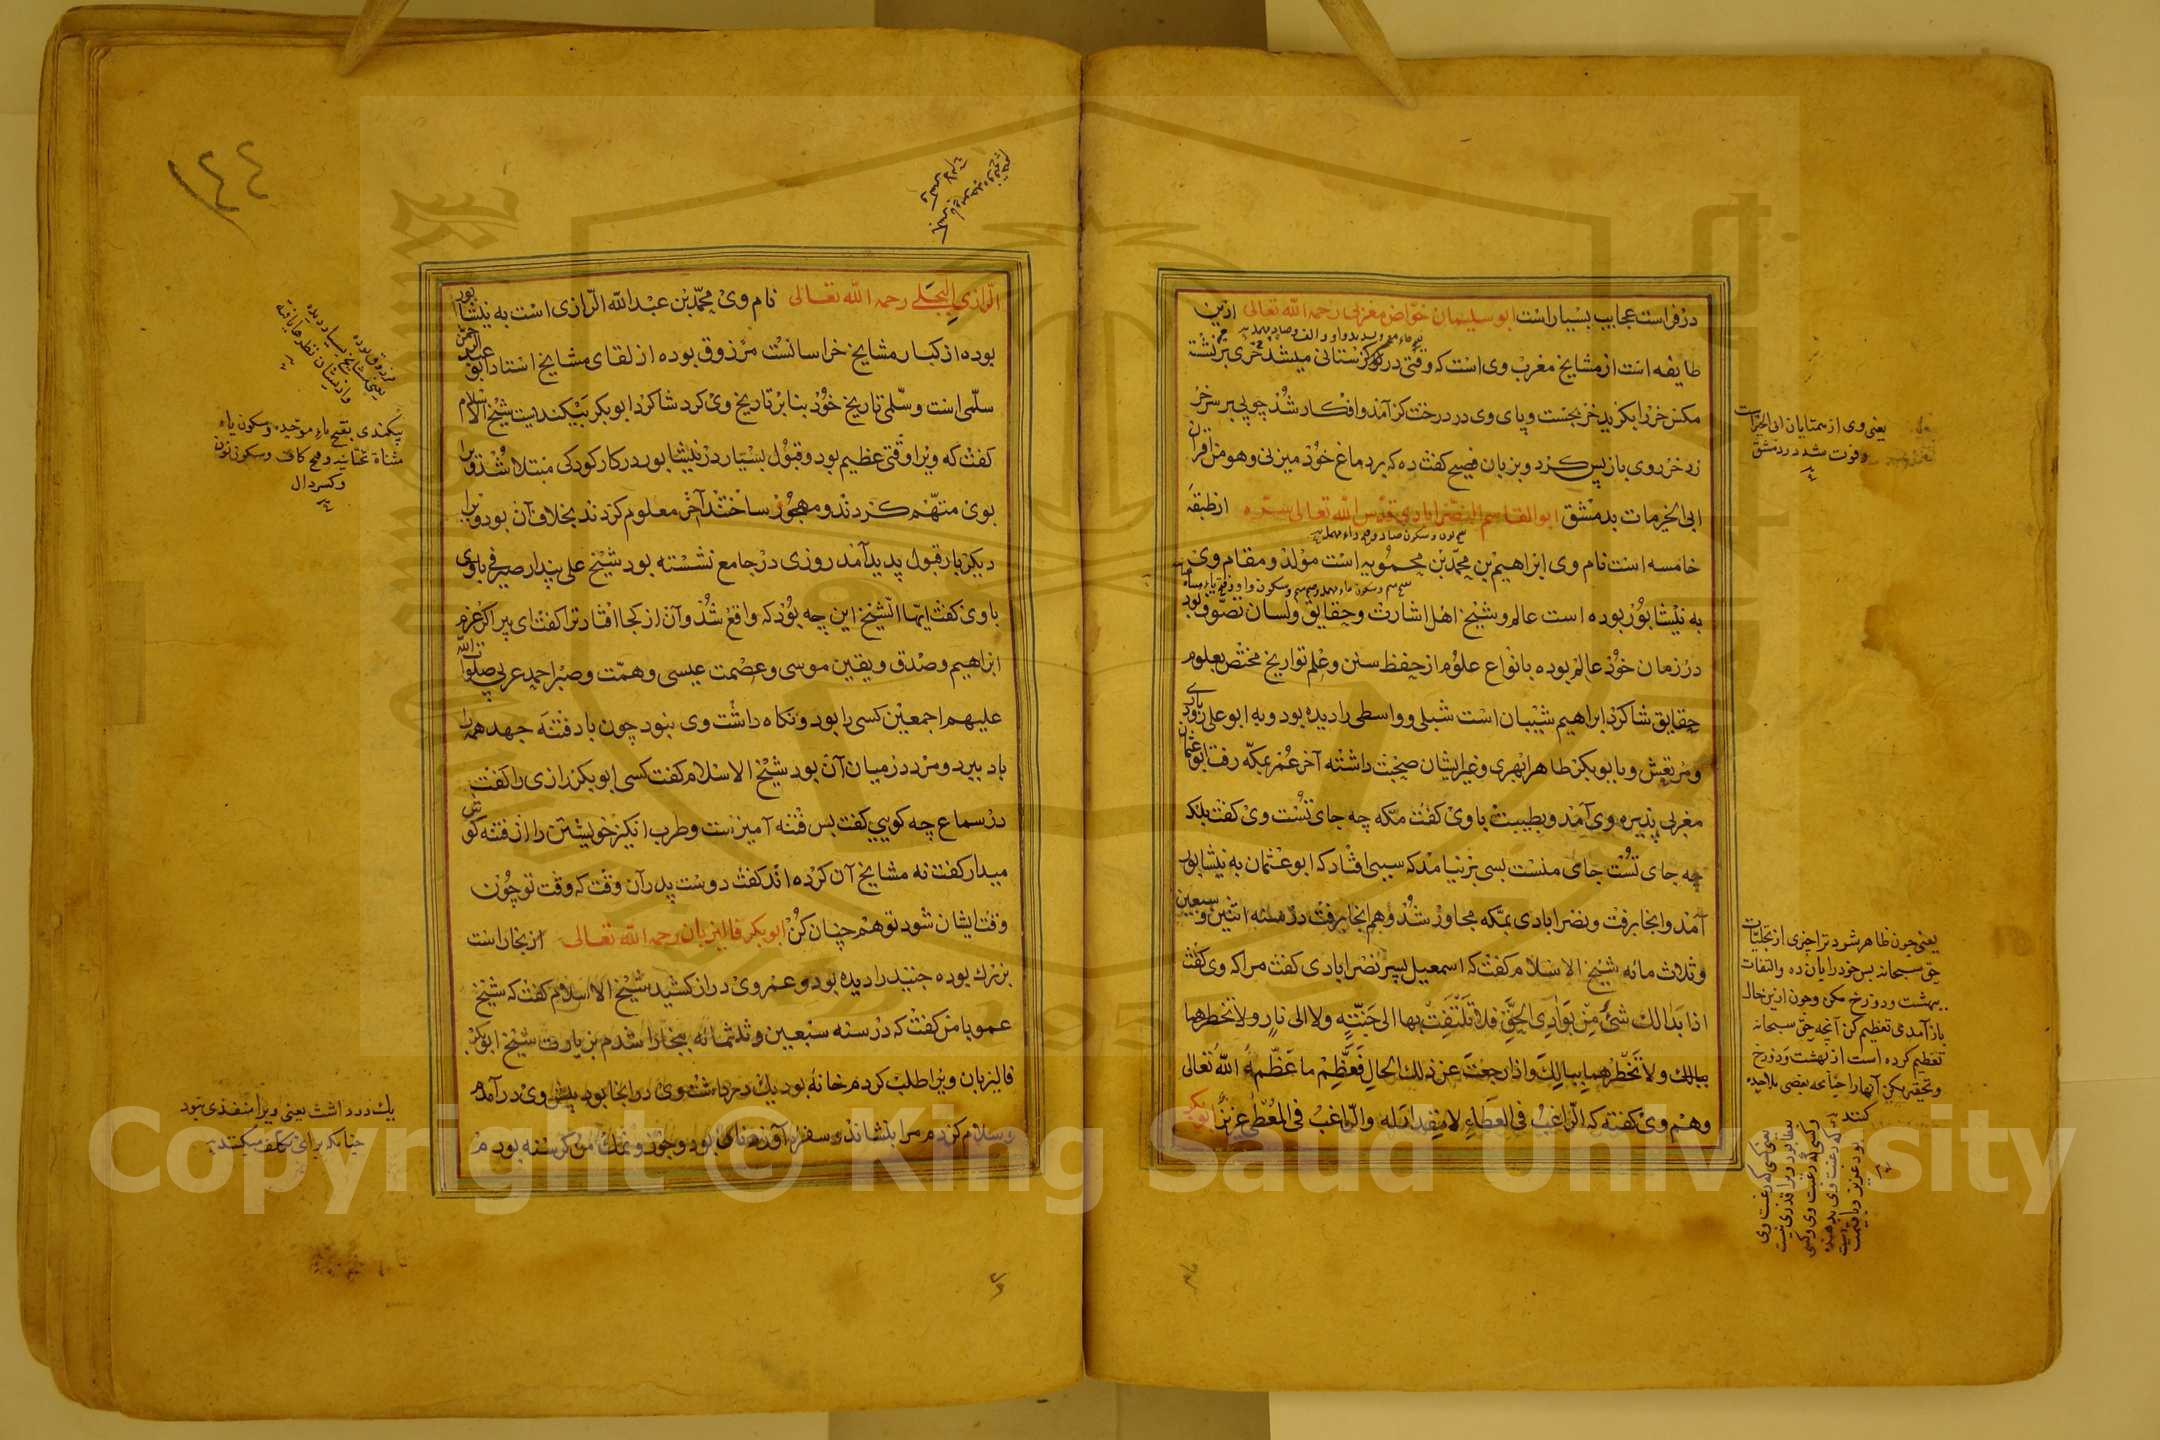 در فراست عجایب بسیار است ابو سلیمان خواص مغربی رحمه الله تعالی ازین
طایفه است از مشایخ مغرب وی است که وقتی در میشد خری برنشته
مکس خر را بکزید خر بجست و پای وی در درخت کز آمد وافکار شد چوبی بر سر خر
زد خر روی باز پس کرد و بزبان فصیح کفت ده که بر دماغ خود میزنی وهو من اقران
ابی الخیر مات بدمشق ابو القاسم النصرابادی قدس الله تعالی سره از طبقهٔ
خامسه است نام وی ابراهیم بن محمد بن محمویه است مولد ومقام وی
به نیشابور بوده است عالم وشیخ اهل اشارت وحقایق ولسان تصوف بود
در زمان خود عالم بوده بانواع علوم از حفظ سنن وعلم تواریخ مختص بعلوم
حقایق شاکرد ابراهیم شیبان است شبلی وواسطی را دیده بود وبه ابو علی رودباری
ومرتعش وبا بوبکر طاهر ابهری وغیر ایشان صحبت داشته آخر عمر بمکه رفت ابو عثمان
مغربی پذیره وی آمد وبطیبت با وی کفت مکه چه جای تست وی کفت بلکه
چه جای تست جای منست بسی بر نیامد که سببی افتاد که ابو عثمان به نیشابور
آمد وانجا برفت ونصرابادی بمکه مجاور شد وهم انجا برفت در سنه اثنین وسبعین
وثلاث مائه شیخ الاسلام کفت که اسمعیل پسر نصرابادی کفت مرا که وی کفت
اذا بدا لك شیٔ من بوادی الحق فلا تلتفت بها الی جنة ولا الی نار ولا تخطرهما
ببالك ولا تخطرهما ببالك واذا رجعت عن ذلك الحال فعظم ما عظمه الله تعالی
وهم وی کفته که الراغب فی العطاء لا مقدار له والراغب فی المعطی عزیز ابو بکر
یعنی وی از همتایان ابی الخیر است
وفوت شد در دمشق
یعنی چون ظاهر شود ترا چیزی از تجلیات
حق سبحانه پس خود را بآن ده والتفات
ببهشت ودوزخ مکن وچون ازین حال
باز آمدی تعظیم کن آنچه حق سبحانه
تعظیم کرده است از بهشت ودوزخ
کنند
یعنی کسی که رغبت وی
الرازی البجلی رحمه الله تعالی نام وی محمد بن عبد الله الرازی است به نیشابور
بوده از کبار مشایخ خراسانست مرزوق بوده از لقای مشایخ استاد ابو عبد الرحمن
سلمی است وسلمی تاریخ خود بنا بر تاریخ وی کرد شاکرد ابو بکر بیکندیت شیخ الاسلام
کفت که ویرا وقتی عظیم بود وقبول بسیار در نیشابور در کار کودکی مبتلا شد ویرا
بوی متهم کردند ومهجور ساختند آخر معلوم کردند بخلاف آن بود ویرا
دیکر بار قبول پدید آمد روزی در جامع نشسته بود شیخ علی پندار صیرفی با وی
با وی کفت ایها الشیخ این چه بود که واقع شد وآن از کجا افتاد ترا کفت ای پیر اکر عزم
ابراهیم وصدق ویقین موسی وعصمت عیسی وهمت وصبر احمد عربی صلوات الله
علیهم اجمعین کسی را بود ونکاه داشت وی نبود چون باد فتنه جهد همه را
باد ببرد ومرد در میان آن بود شیخ الاسلام کفت کسی ابو بکر رازی را کفت
در سماع چه کویی کفت بس فتنه آمیزست وطرب انکیز خویشتن را از فتنه کوش
میدار کفت نه مشایخ آن کرده اند کفت دوست پدر آن وقت که وقت تو چون
وقت ایشان شود تو هم چنان کن ابو بکر فالیزبان رحمه الله تعالی از بخار است
بزرك بوده جنید را دیده بود وعمر وی دراز کشید شیخ الاسلام کفت که شیخ
عمو با من کفت که در سنه سبعین وثلثمائه ببخارا شدم بزیارت شیخ ابو بکر
فالیزبان ویرا طلب کردم خانهٔ بود یك در داشت وی در انجا بود پیش وی در آمدم
وسلام کردم مرا بنشاند وسفره آورد نان بود وجوز ونمك من کرسنه بودم
مرزوق بوده
یعنی مشایخ بسیار دیده
بیکندی بفتح باء موحده وسکون یاء
مثناة تحتانیه وفتح کاف وسکون نون
وکسر دال
یك در داشت یعنی ویرا منفذی نبود
چنانکه برای تکلف میکنند
٢٤
Copyright © King Saud University
1957